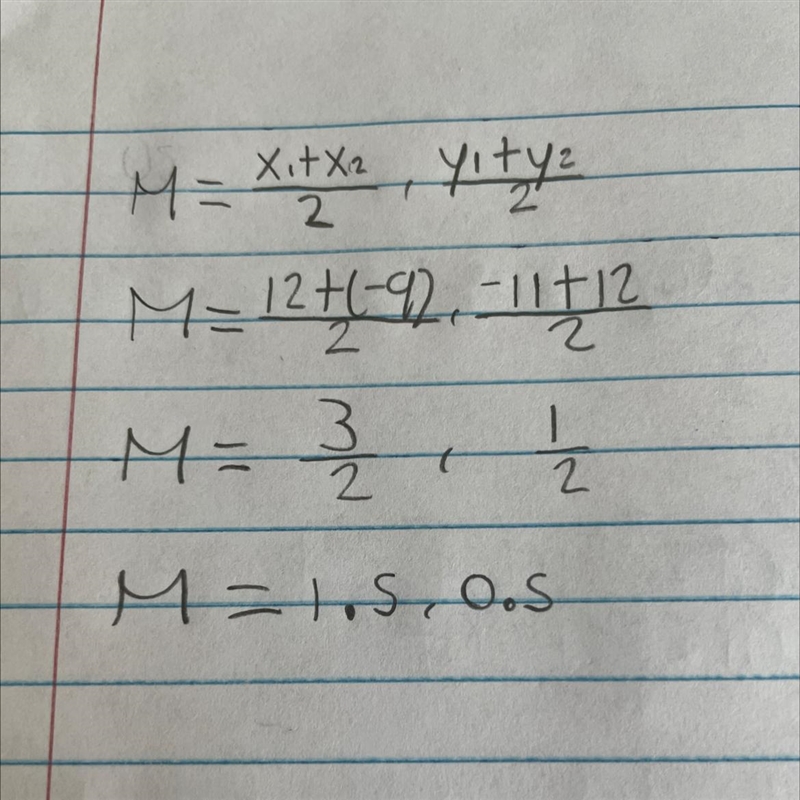 M = x₁+x₂/2, y₁+y₂/2
M = 12+(-9)/2, -11+12/2
M = 3/2, 1/2
M = 1.5, 0.5